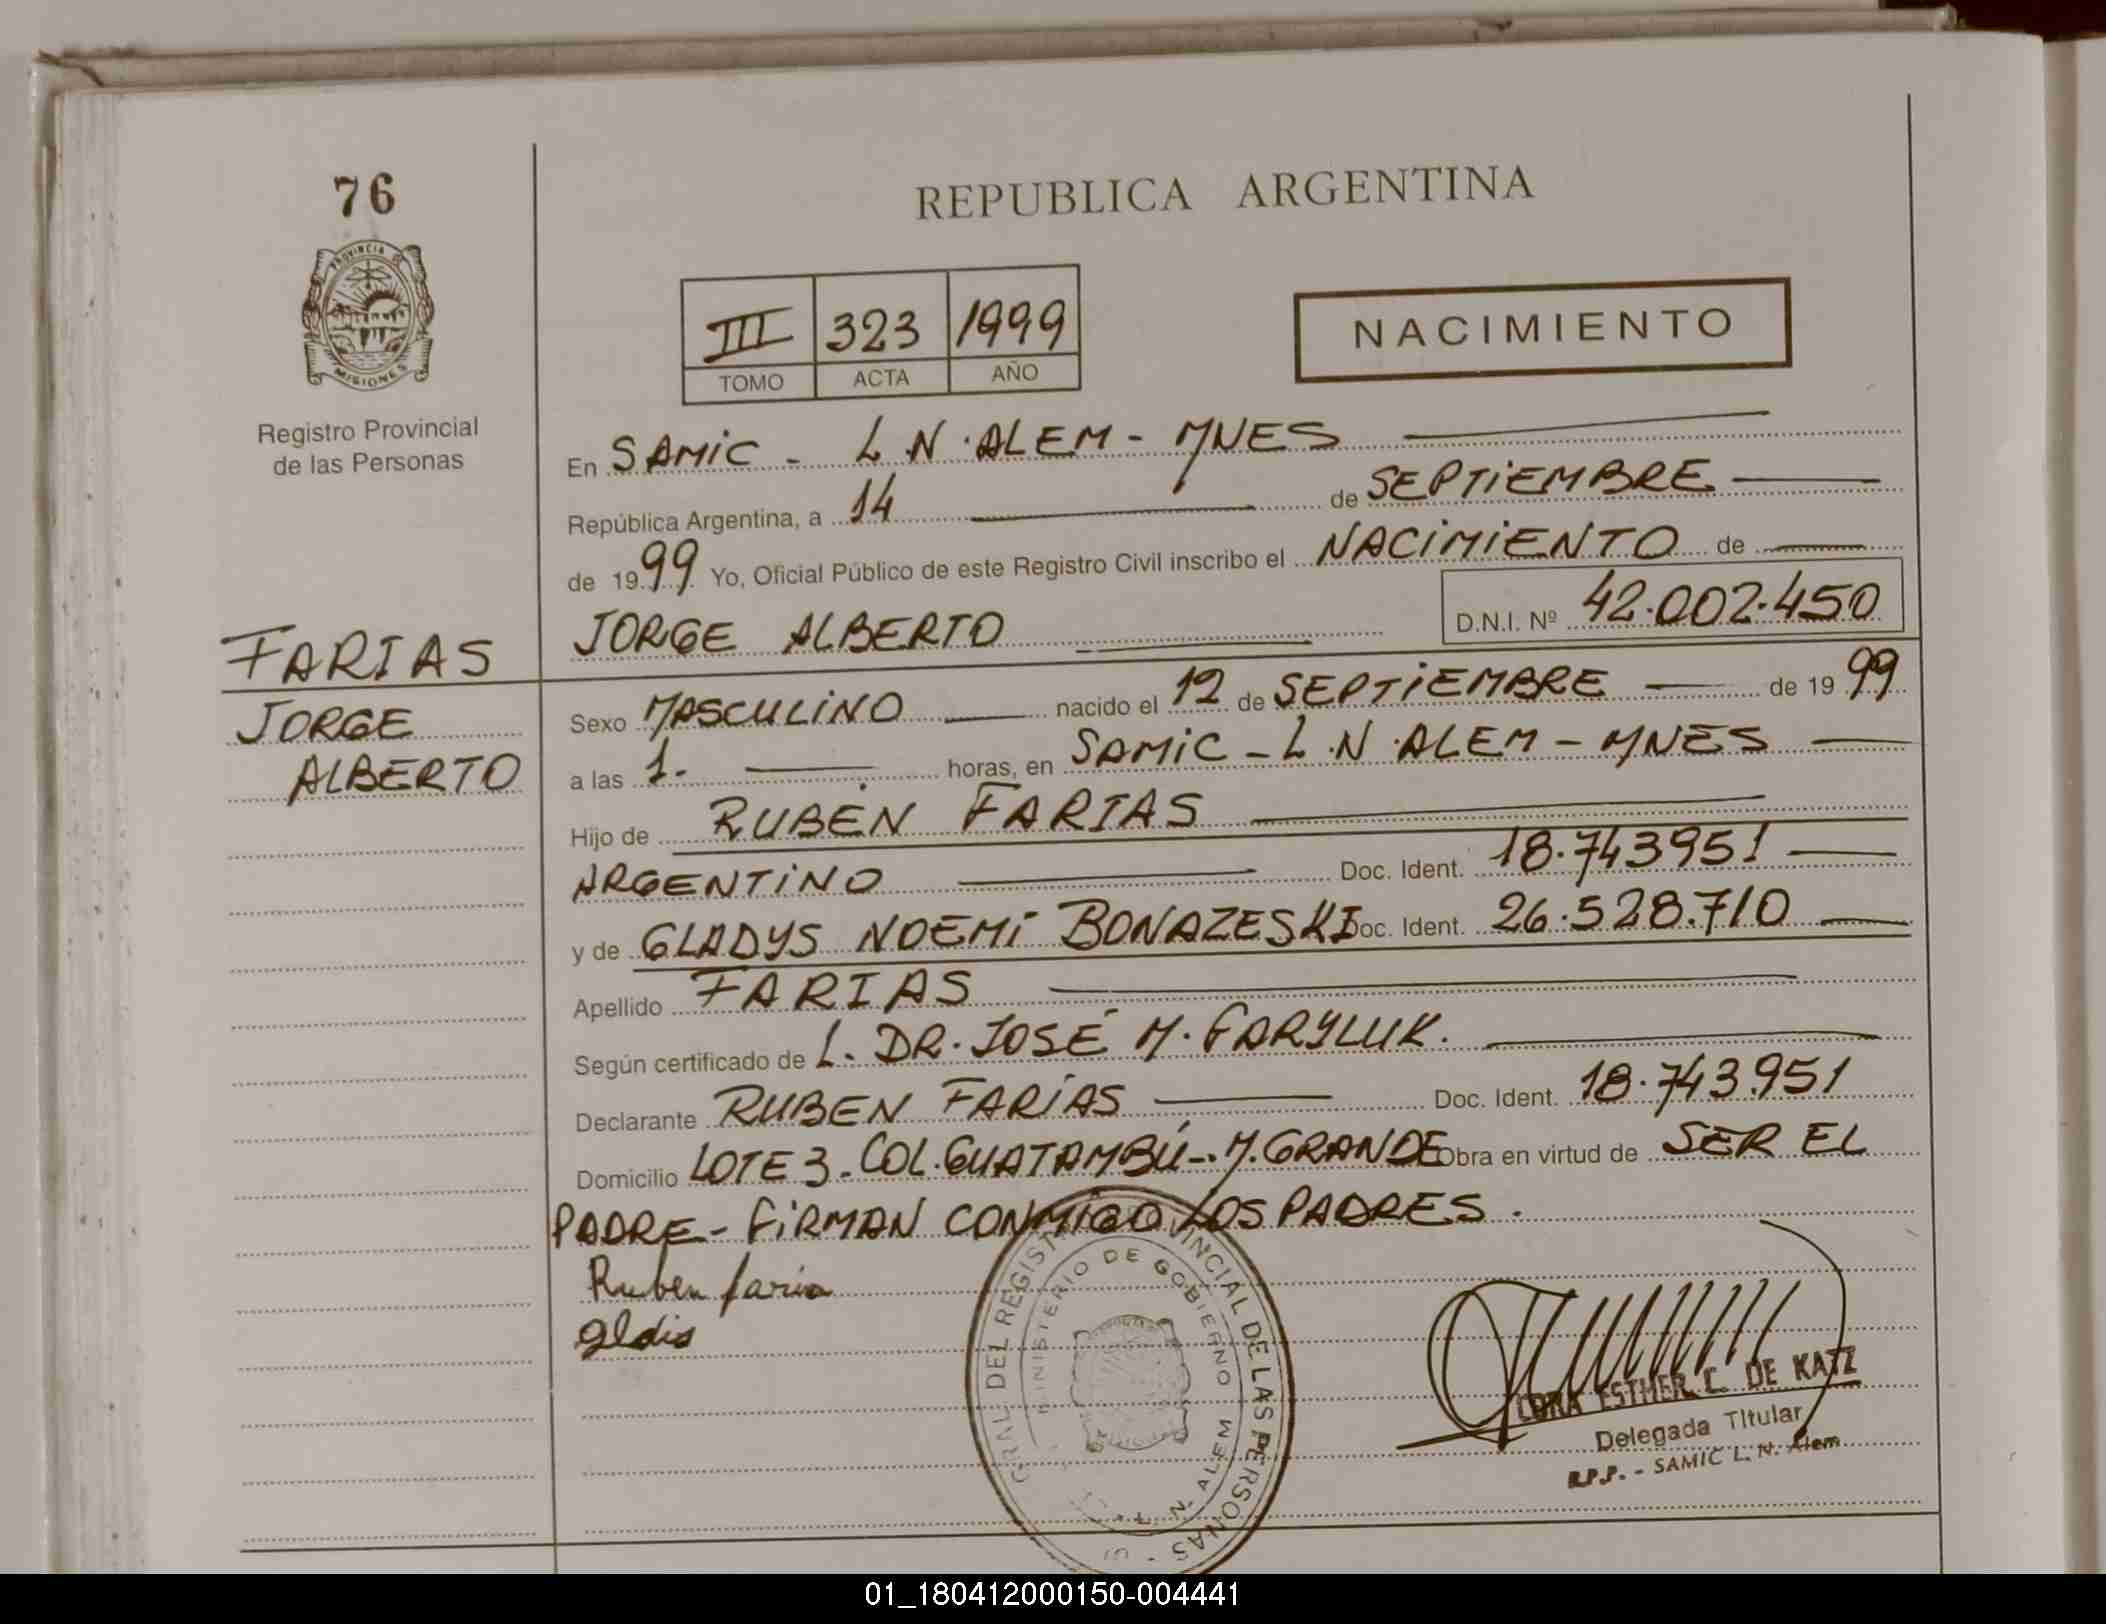 76
REPUBLICA ARGENTINA
PROVINCIA DE
MISIONES
Registro Provincial
de las Personas
III 323 1999
TOMO ACTA AÑO
NACIMIENTO
En SAMIC - L.N.ALEM - MNES
República Argentina, a 14 de SEPTIEMBRE
de 1999 Yo, Oficial Público de este Registro Civil inscribo el NACIMIENTO de
JORGE ALBERTO D.N.I. Nº 42.002.450
FARIAS
JORGE
ALBERTO
Sexo MASCULINO nacido el 12 de SEPTIEMBRE de 1999
a las 1. horas, en SAMIC - L.N.ALEM - MNES
Hijo de RUBÉN FARIAS
ARGENTINO Doc. Ident. 18.743951
y de GLADYS NOEMI BONAZESKI Doc. Ident. 26.528.710
Apellido FARIAS
Según certificado de L. DR. JOSÉ M. GARYLUK.
Declarante RUBEN FARÍAS Doc. Ident. 18.743.951
Domicilio LOTE 3 - COL. GUATAMBÚ - M. GRANDE Obra en virtud de SER EL
PADRE - FIRMAN CONMIGO LOS PADRES.
Ruben faria
gldis
GRAL. DEL REGISTRO PROVINCIAL DE LAS PERSONAS
MINISTERIO DE GOBIERNO
L. N. ALEM
ESTHER C. DE KATZ
Delegada Titular
R.P.P. - SAMIC L. N. Alem
01_180412000150-004441